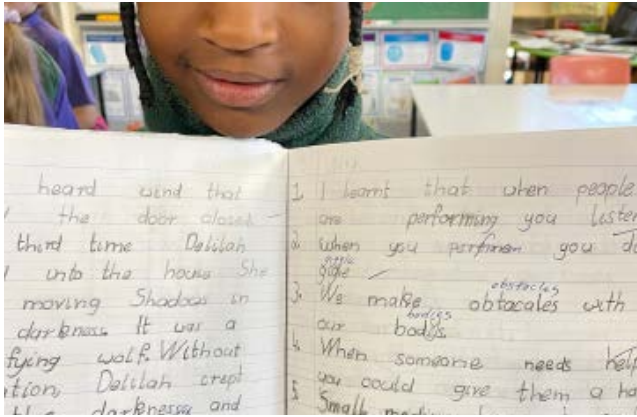 heard wind that
the door closed
third time Delilah
unto the house She
moving Shadows in
darkness It was a
fying wolf. Without
tion, Delilah crept
the darkness and
1. I learnt that when people
are performing you listen
2. when you you
giggle
3. We make obtacales with
obstacles
our bodys
bodies
4. When someone needs help
you could give them a
5. Small